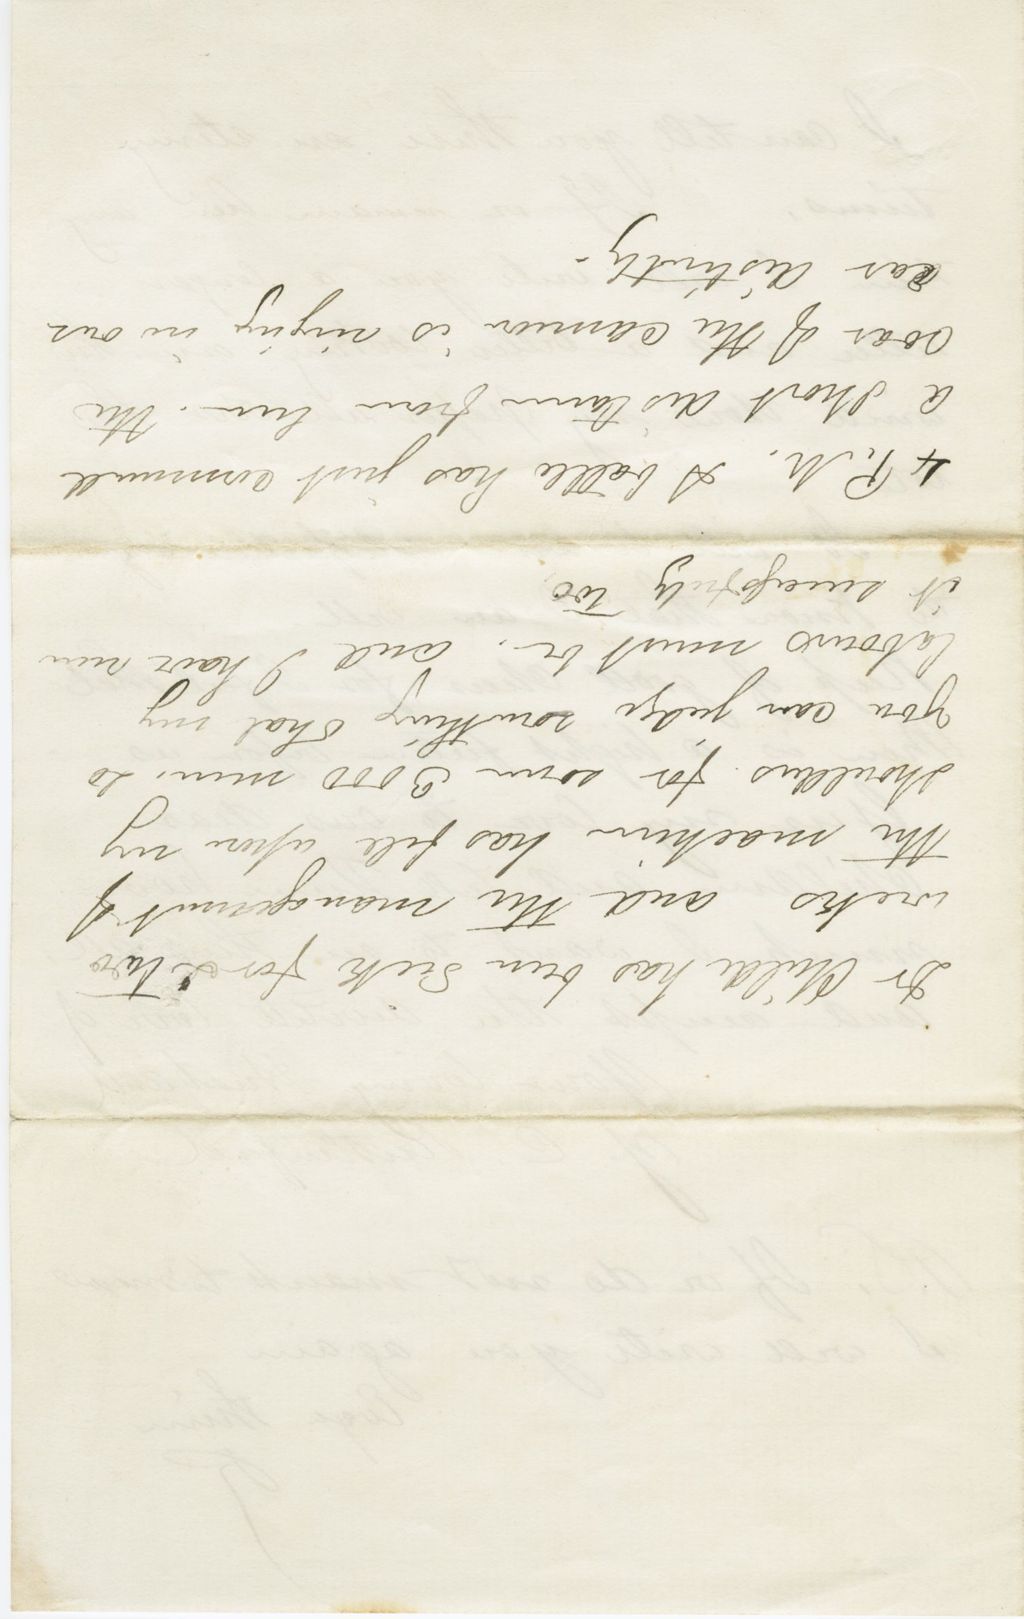 Dr Child has been Sick for 2 two
weeks and the management of
the machine has fell upon my
shoulders for some 3000 men. So
you can judge something what my
labours must be. and I have run
it successfuly too,
4 P.M. A battle has just commenced
a short distance from here. the
roar of the cannon is ringing in our
ear distinctly -